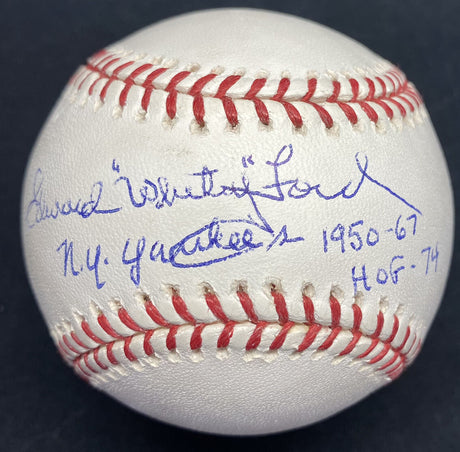 Edward "Whitey" Ford
N.Y. Yankees 1950-67
HOF-74